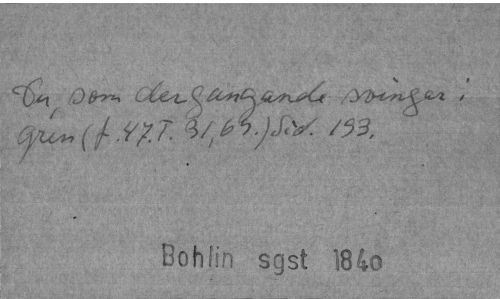 Du, som dergångande svingar i
gren (f. 47. T. 31,69.) Sid. 193.
Bohlin sgst 1840